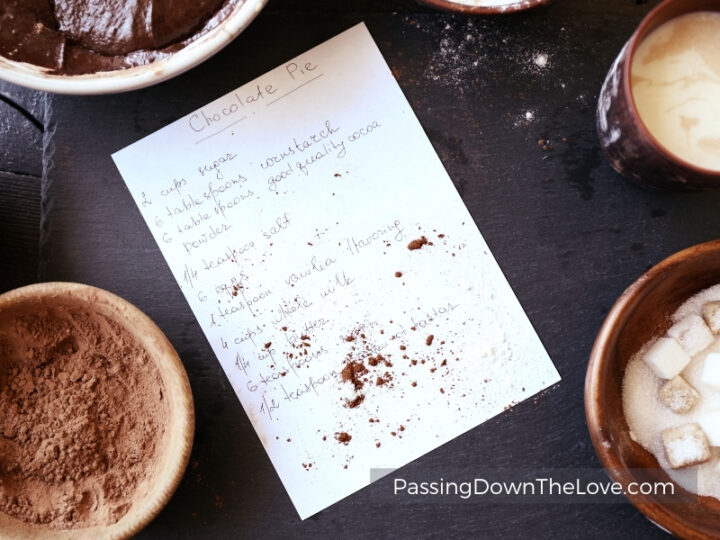 Chocolate Pie
2 cups sugar
6 tablespoons cornstarch
6 tablespoons good quality cocoa
powder
1/4 teaspoon salt
6 eggs
1 teaspoon vanilla flavoring
4 cups whole milk
1/4 cup butter
6 teaspoons
1/2 teaspoon tartar
PassingDownTheLove.com